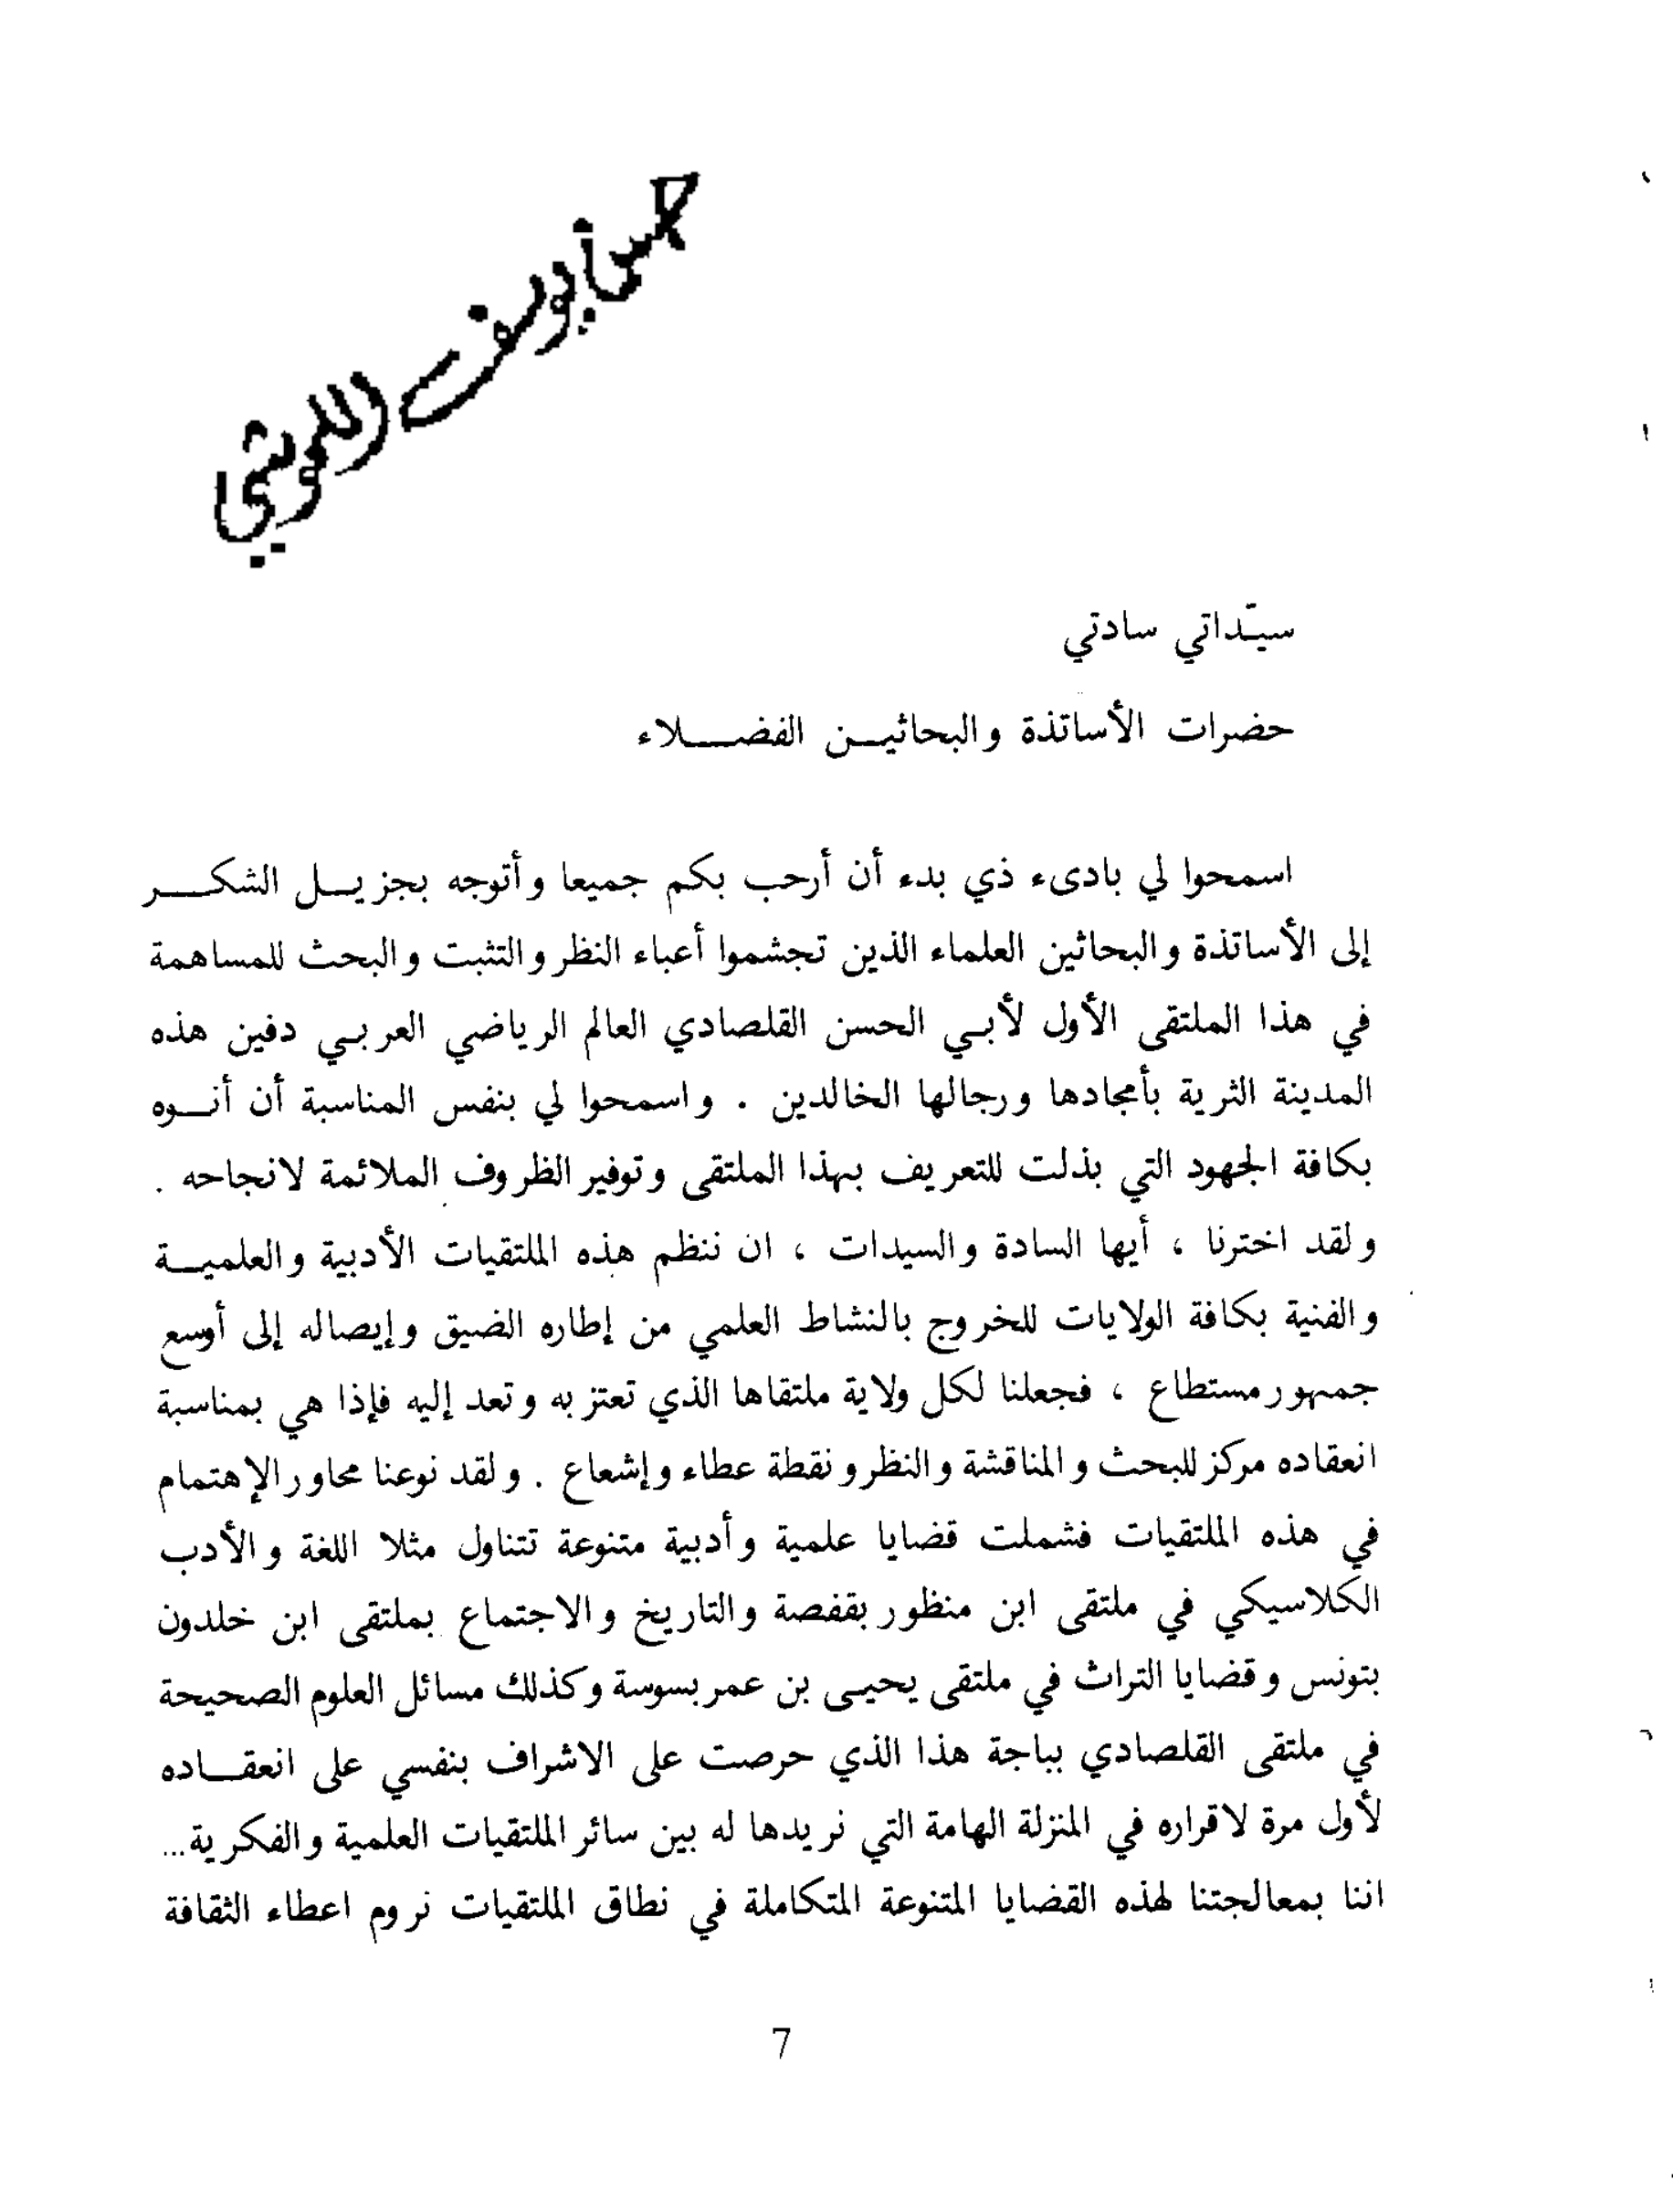 سيّداتي سادتي
حضرات الأساتذة والبحاثيـن الفضـــلاء
اسمحوا لي بادىء ذي بدء أن أرحب بكم جميعا وأتوجه بجزيـل الشكـــر
إلى الأساتذة والبحاثين العلماء الذين تجشموا أعباء النظر والتثبت والبحث للمساهمة
في هذا الملتقى الأول لأبـي الحسن القلصادي العالم الرياضي العربـي دفين هذه
المدينة الثرية بأمجادها ورجالها الخالدين . واسمحوا لي بنفس المناسبة أن أنــوه
بكافة الجهود التي بذلت للتعريف بهذا الملتقى وتوفير الظروف الملائمة لانجاحه .
ولقد اخترنا ، أيها السادة والسيدات ، ان ننظم هذه الملتقيات الأدبية والعلميــة
والفنية بكافة الولايات للخروج بالنشاط العلمي من إطاره الضيق وإيصاله إلى أوسع
جمهور مستطاع ، فجعلنا لكل ولاية ملتقاها الذي تعتز به وتعد إليه فإذا هي بمناسبة
انعقاده مركز للبحث والمناقشة والنظر ونقطة عطاء وإشعاع . ولقد نوعنا محاور الإهتمام
في هذه الملتقيات فشملت قضايا علمية وأدبية متنوعة تتناول مثلا اللغة والأدب
الكلاسيكي في ملتقى ابن منظور بقفصة والتاريخ والاجتماع بملتقى ابن خلدون
بتونس وقضايا التراث في ملتقى يحيـى بن عمر بسوسة وكذلك مسائل العلوم الصحيحة
في ملتقى القلصادي بباجة هذا الذي حرصت على الاشراف بنفسي على انعقــاده
لأول مرة لاقراره في المنزلة الهامة التي نريدها له بين سائر الملتقيات العلمية والفكرية...
اننا بمعالجتنا لهذه القضايا المتنوعة المتكاملة في نطاق الملتقيات نروم اعطاء الثقافة
7